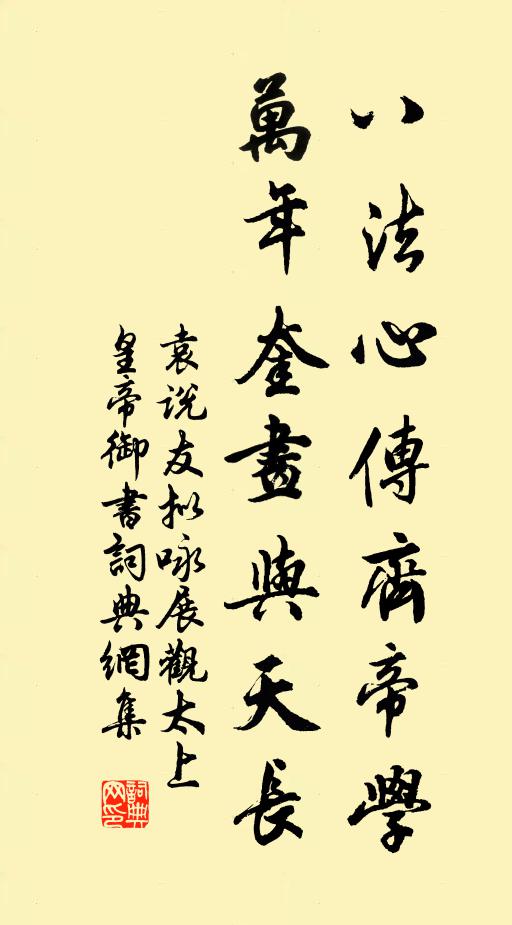 八法心傳齊帝學
萬年奎畫與天長
袁説友拟咏展觀太上
皇帝御書詞典網集
詞典网印